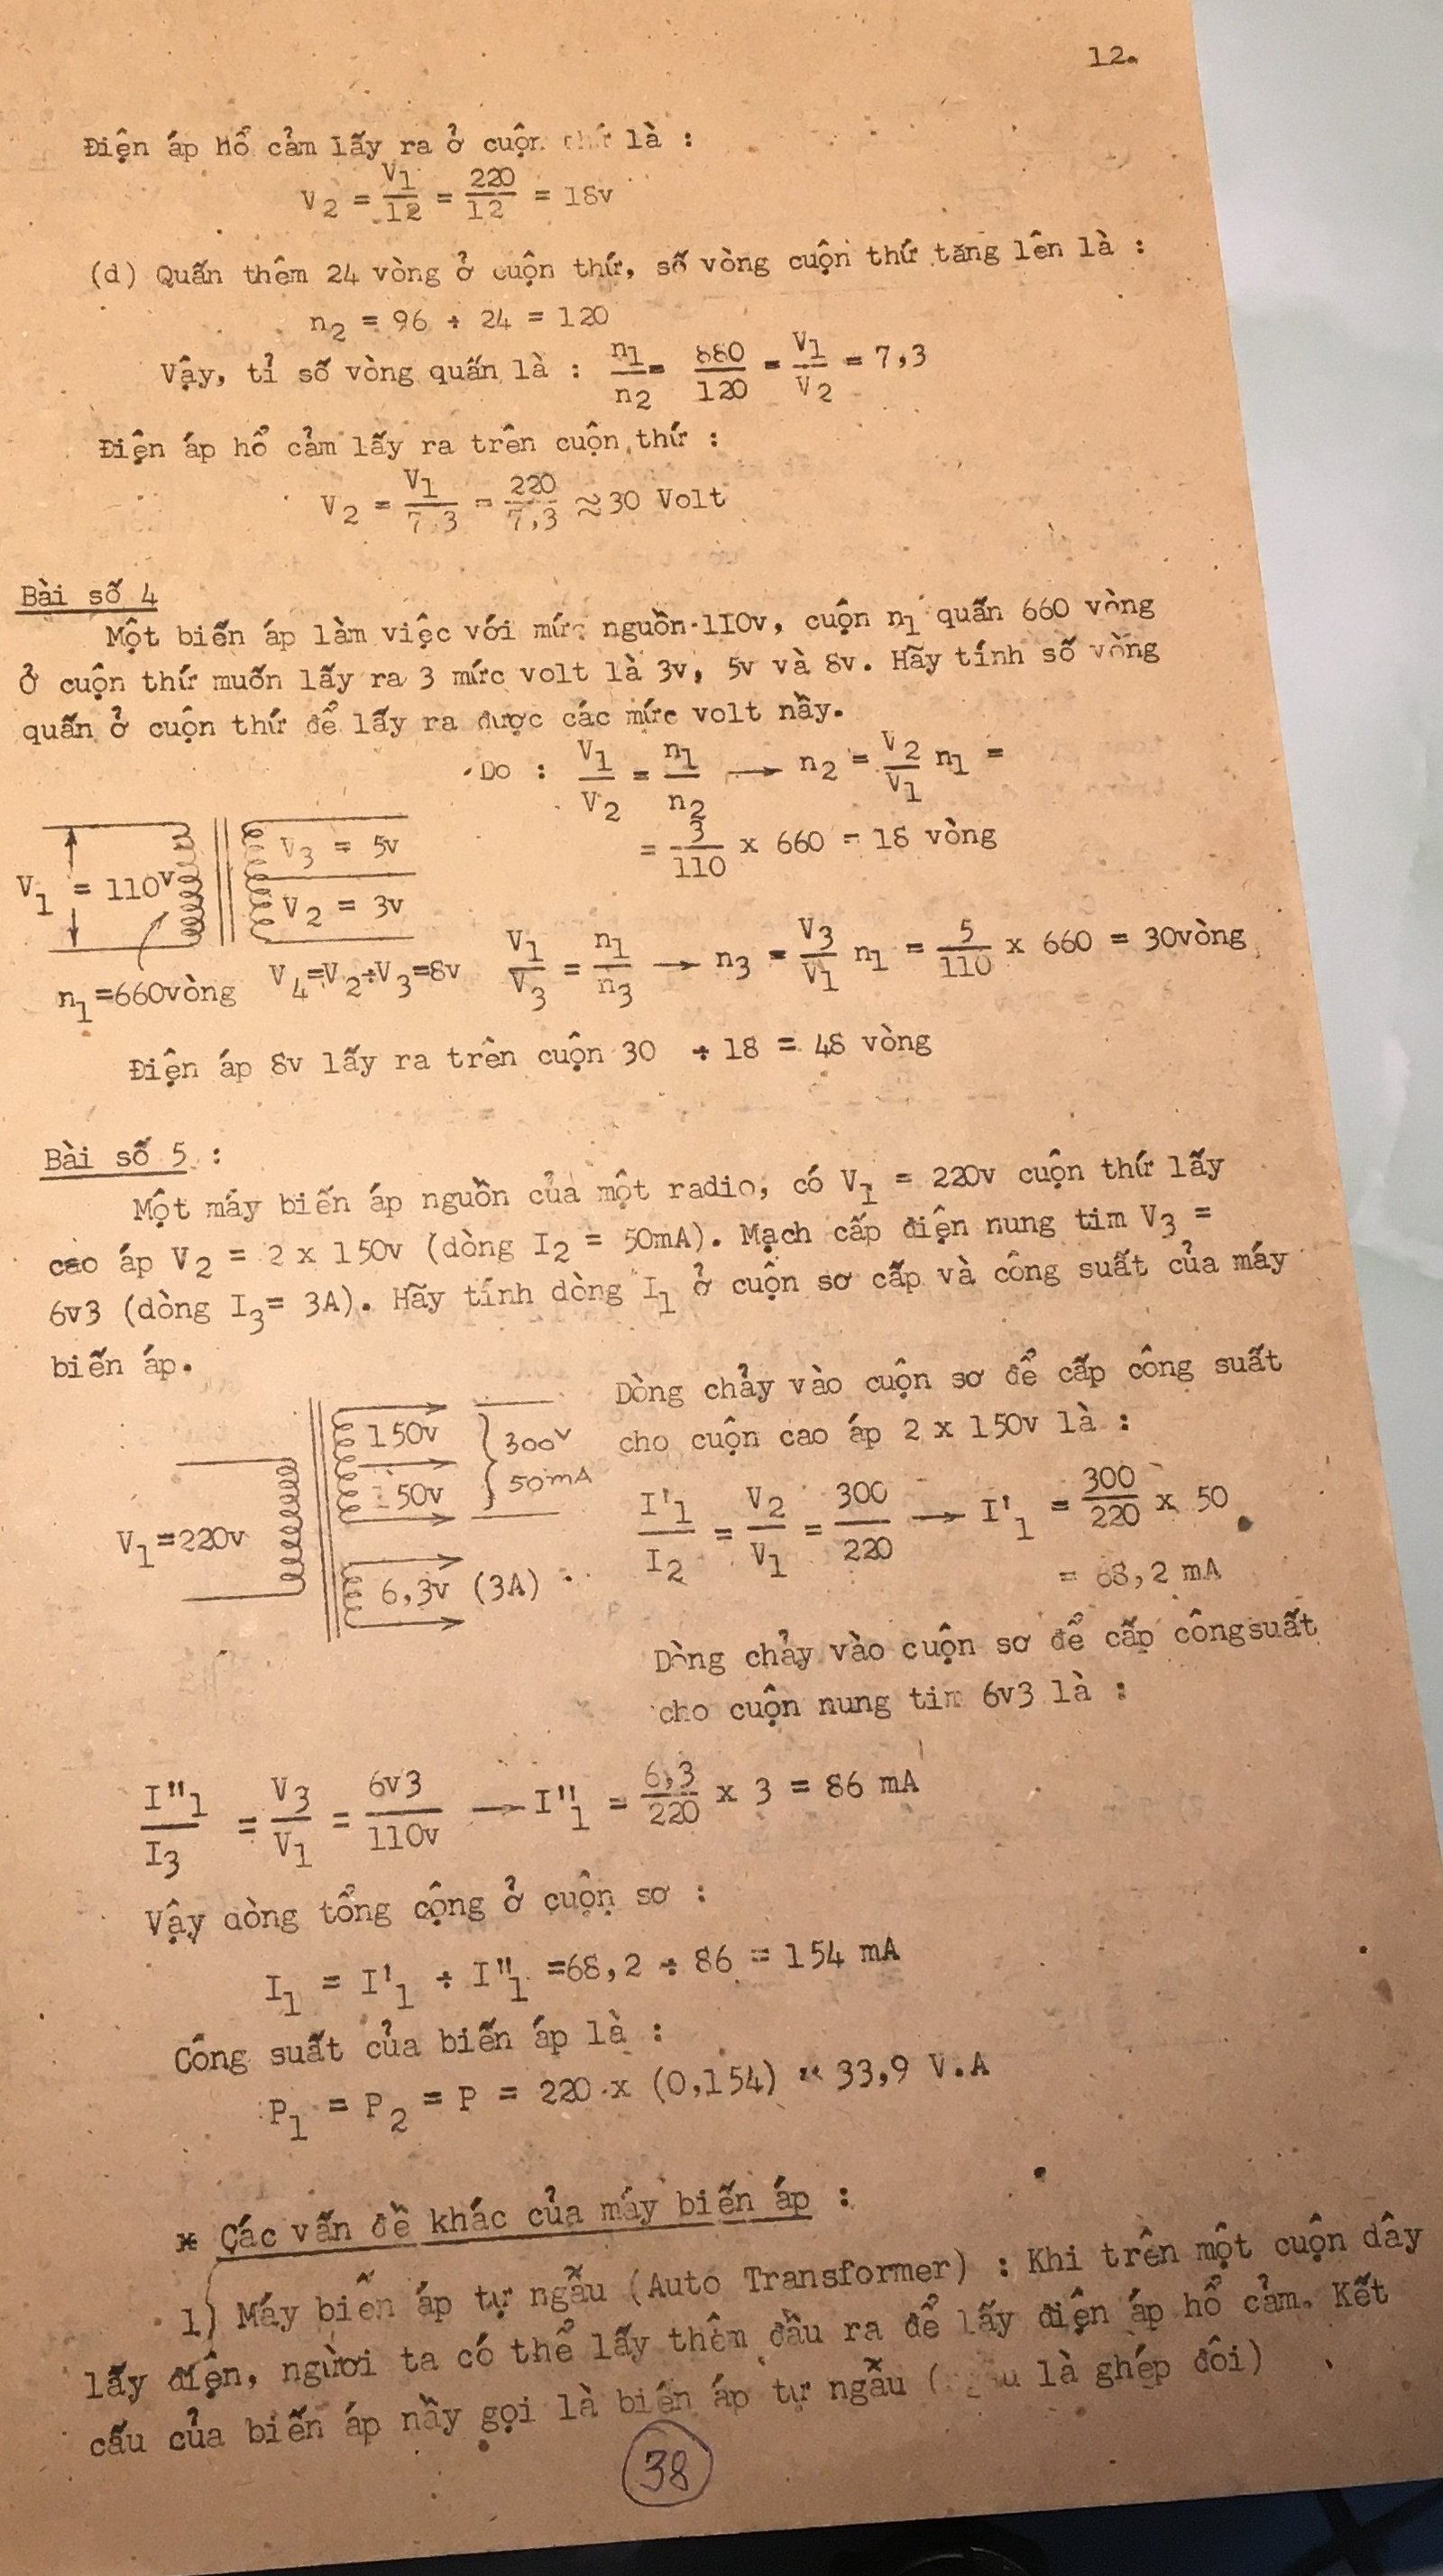 12.
Điện áp hổ cảm lấy ra ở cuộn thứ là :
V2 = V1/12 = 220/12 = 18v
(d) Quấn thêm 24 vòng ở cuộn thứ, số vòng cuộn thứ tăng lên là :
n2 = 96 + 24 = 120
Vậy, tỉ số vòng quấn là : n1/n2 = 880/120 = V1/V2 = 7,3
Điện áp hổ cảm lấy ra trên cuộn thứ :
V2 = V1/7,3 = 220/7,3 ≈ 30 Volt
Bài số 4
Một biến áp làm việc với mức nguồn 110v, cuộn n1 quấn 660 vòng
Ở cuộn thứ muốn lấy ra 3 mức volt là 3v, 5v và 8v. Hãy tính số vòng
quấn ở cuộn thứ để lấy ra được các mức volt nầy.
Do : V1/V2 = n1/n2 → n2 = V2/V1 n1 =
= 3/110 x 660 = 18 vòng
V3 = 5v
V1 = 110v
V2 = 3v
n1=660vòng
V4=V2+V3=8v
V1/V3 = n1/n3 → n3 = V3/V1 n1 = 5/110 x 660 = 30vòng
Điện áp 8v lấy ra trên cuộn 30 + 18 = 48 vòng
Bài số 5 :
Một máy biến áp nguồn của một radio, có V1 = 220v cuộn thứ lấy
cao áp V2 = 2 x 150v (dòng I2 = 50mA). Mạch cấp điện nung tim V3 =
6v3 (dòng I3= 3A). Hãy tính dòng I1 ở cuộn sơ cấp và công suất của máy
biến áp.
150v
150v
300v
50mA
V1=220v
6,3v (3A)
Dòng chảy vào cuộn sơ để cấp công suất
cho cuộn cao áp 2 x 150v là :
I'1/I2 = V2/V1 = 300/220 → I'1 = 300/220 x 50
= 68,2 mA
Dòng chảy vào cuộn sơ để cấp côngsuất
cho cuộn nung tim 6v3 là :
I"1/I3 = V3/V1 = 6v3/110v → I"1 = 6,3/220 x 3 = 86 mA
Vậy dòng tổng cộng ở cuộn sơ :
I1 = I'1 + I"1 =68,2 + 86 = 154 mA
Công suất của biến áp là :
P1 = P2 = P = 220 x (0,154) = 33,9 V.A
* Các vấn đề khác của máy biến áp :
1) Máy biến áp tự ngẫu (Auto Transformer) : Khi trên một cuộn dây
lấy điện, người ta có thể lấy thêm đầu ra để lấy điện áp hổ cảm. Kết
cấu của biến áp nầy gọi là biến áp tự ngẫu ( là ghép đôi)
38